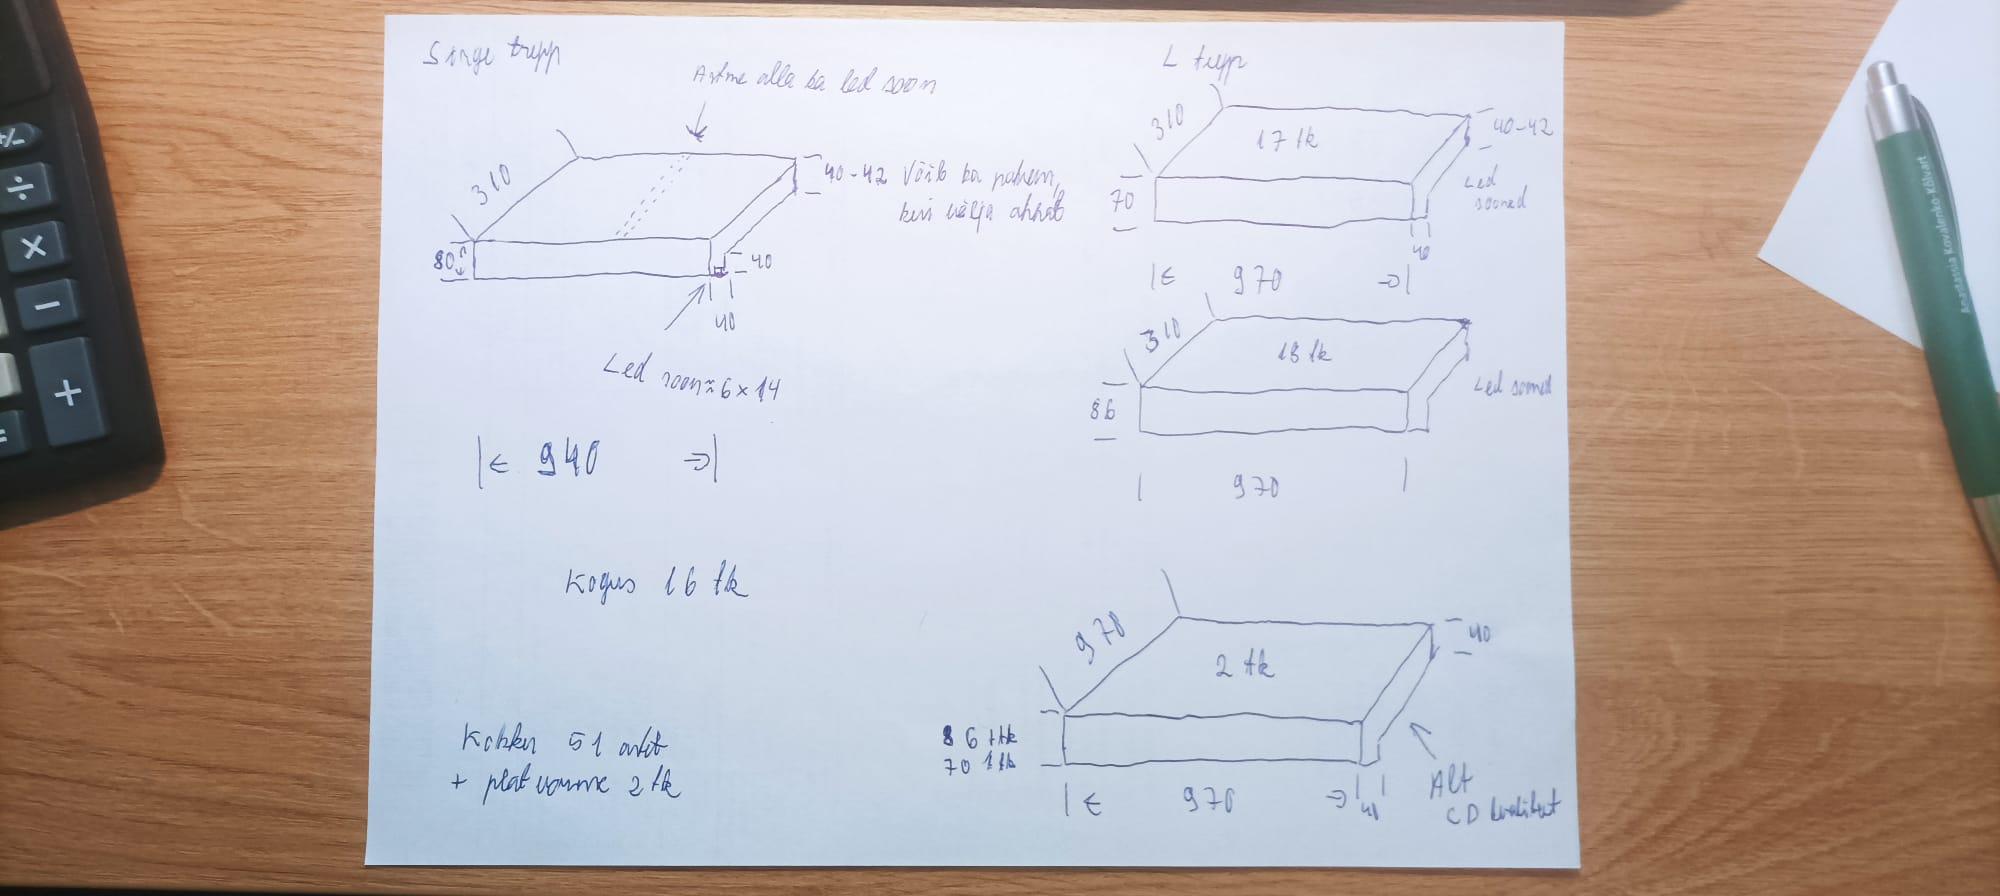 Sirge trepp
Astme alla ka led soon
310
40-42 Võib ka paksem,
kui välja ahhab
80
40
40
Led soon ≈ 6 x 14
|← 940 →|
Kogus 16 tk
Kokku 51 astet
+ platvorme 2 tk
L trepp
310
17 tk
40-42
Led
sooned
70
40
|← 970 →|
310
18 tk
86
Led sooned
| 970 |
970
2 tk
40
86 1tk
70 1tk
|← 970 →|
40
Alt
CD kvaliteet
+/-
÷
×
−
+
=
Anastassia Kovalenko-Kõlvart